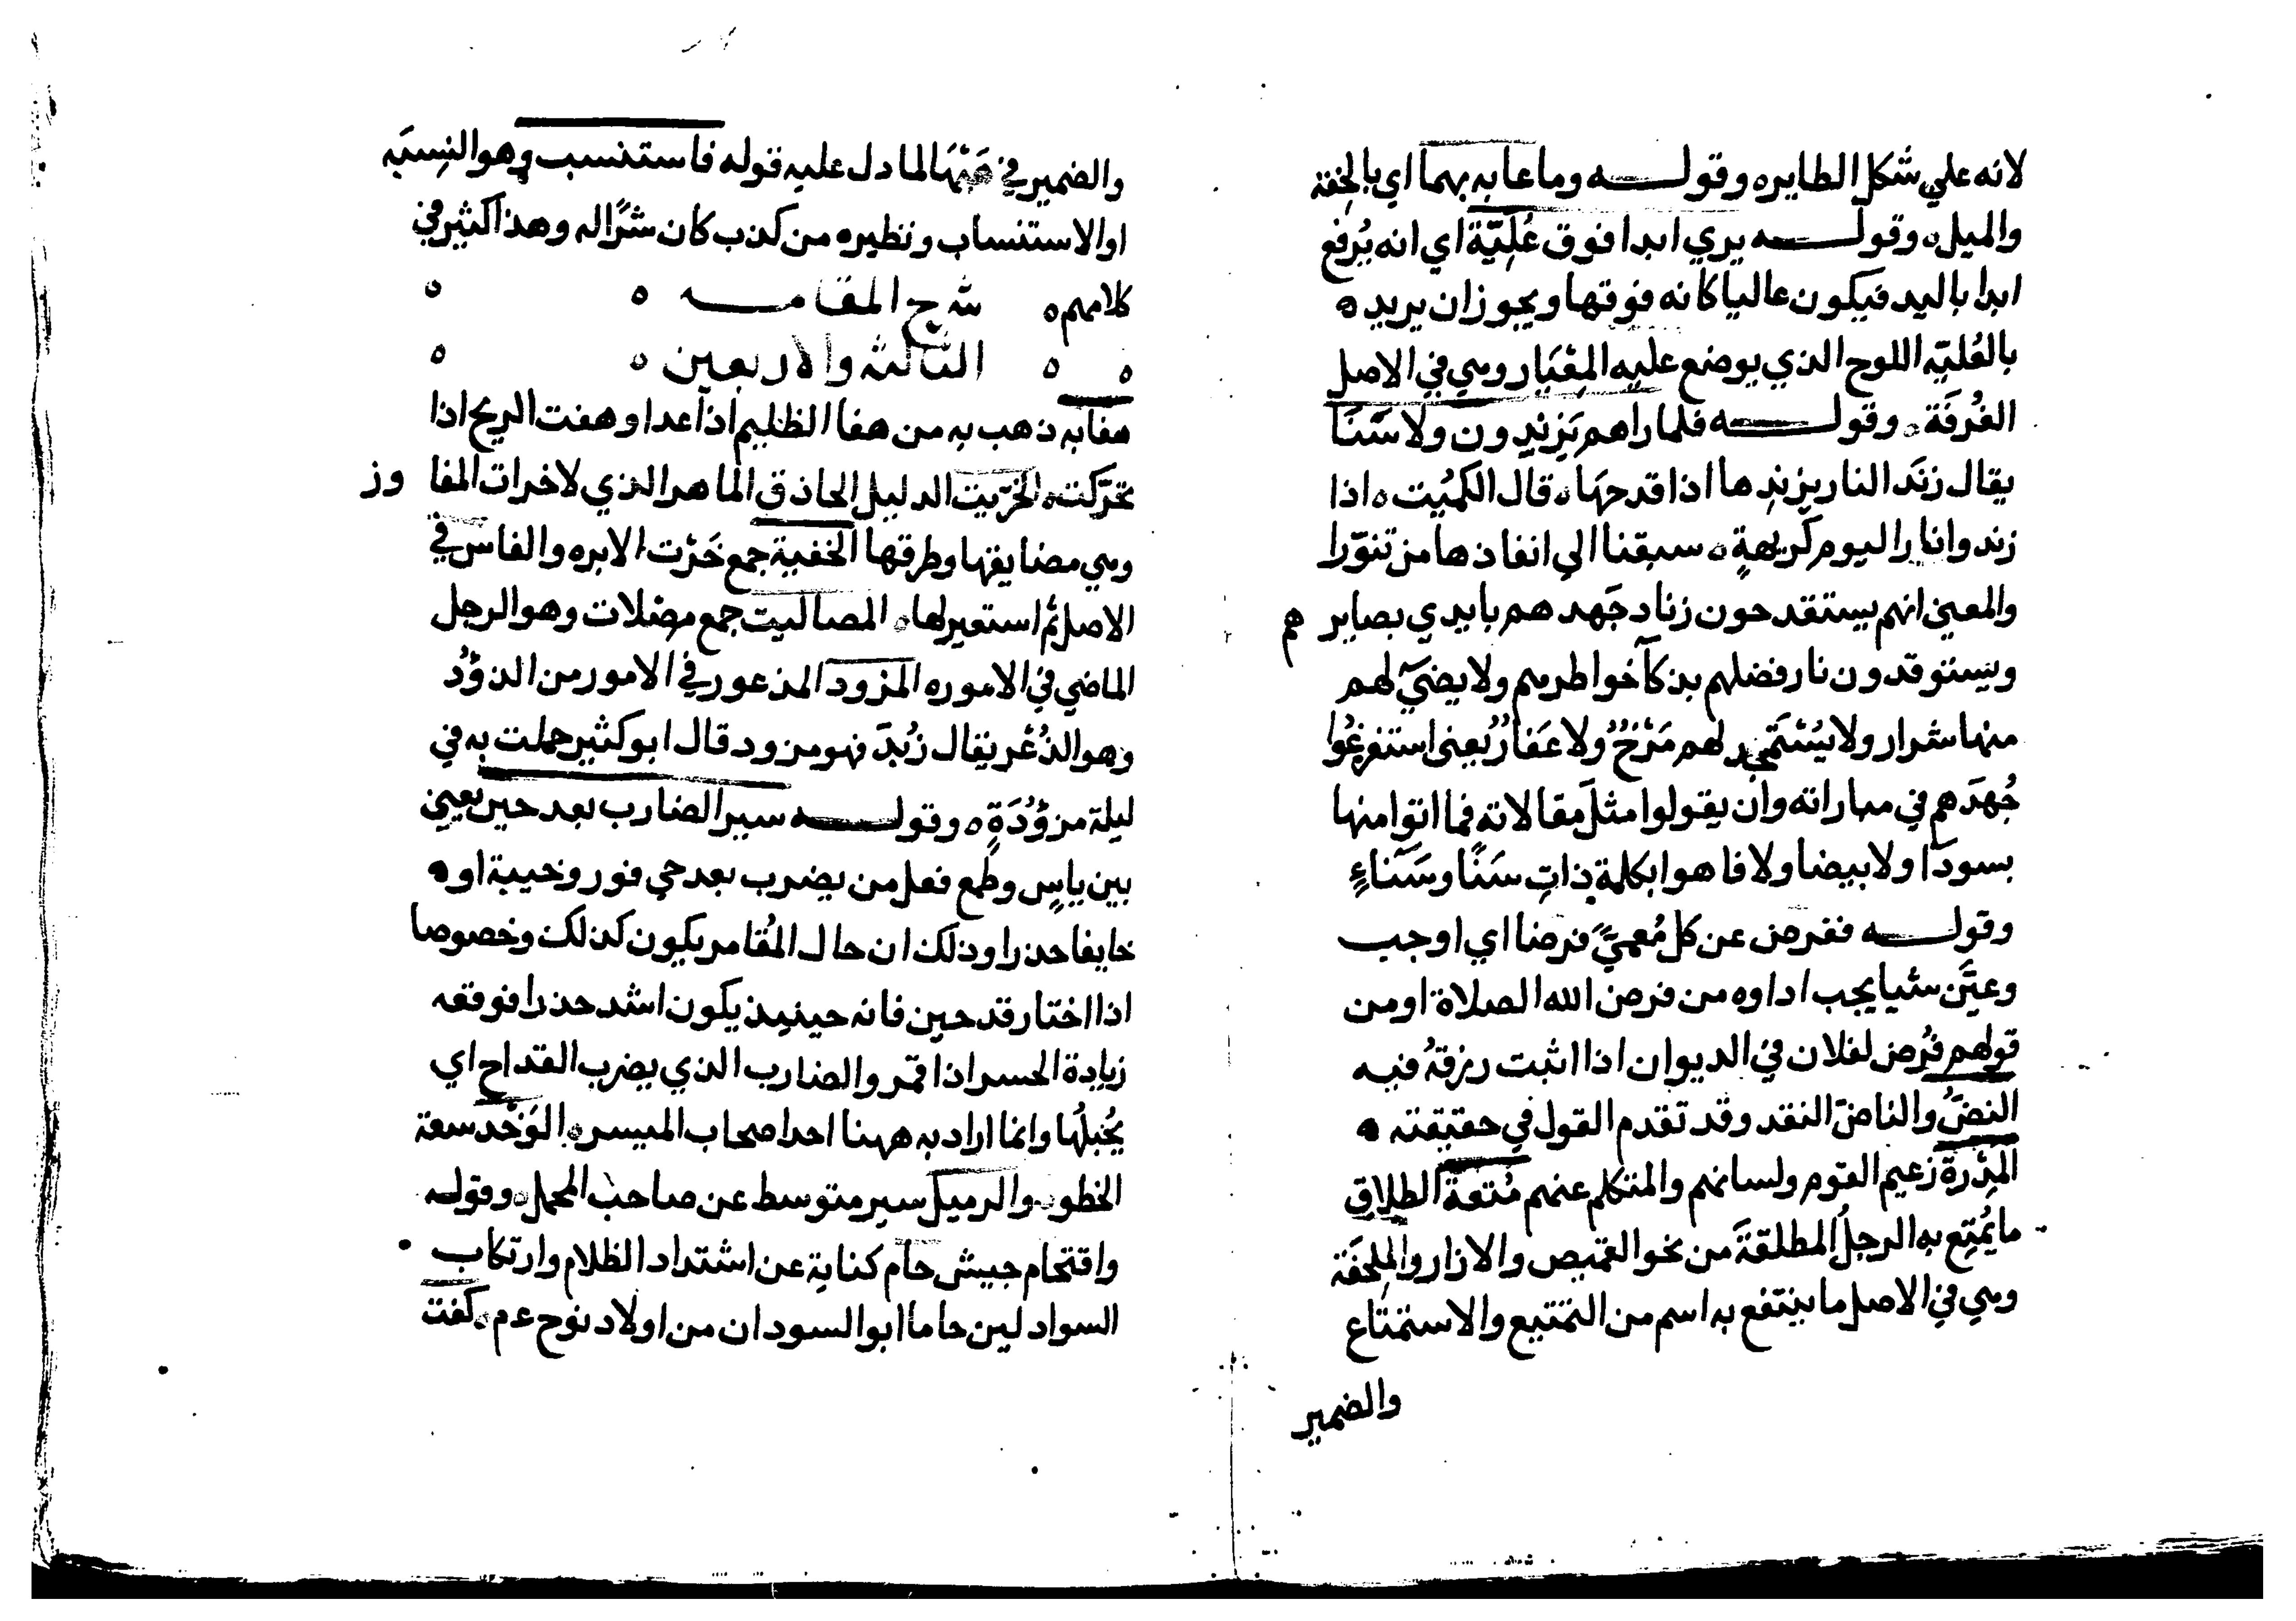 لانه علي شكل الطايره وقولـــه وما عابه بهما اي بالخفة
والميل ه وقولـــه يري ابدا فوق عُلِيّة اي انه يُرفع
ابدا باليد فيكون عاليا كانه فوقها ويجوز ان يريد ه
بالعُليّه اللوح الذي يوضع عليه المِعْيَار وهي في الاصل
الغُرفَة ه وقولـــه فلما راهم يَزنِدون ولا سَنًا
يقال زنَد النار يزنِدها اذا قدحهَا ه قال الكميُت ه اذا
زندوا نارا ليوم كريهةٍ ه سبقنا الي انفاذها من تنوّرا
والمعني انهم يستقدحون زناد جَهدهم بايدي بصايرهم
ويستوقدون نار فضلهم بذكآ خواطرهم ولا يضيَ لهم
منها شرار ولا يَستَمجِد لهم مَرْخٌ ولا عَفارٌ يعني استفرغُوا
جُهدَهم في مباراته وان يقولوا مثلَ مقالاته فما اتوا منها
بسودآ ولا بيضا ولا فاهوا بكلمة ذاتِ سَنًا وسَنَاءٍ
وقولـــه ففرض عن كل مُعمّيً فرضا اي اوجب
وعيَّن شيا يجب اداوه من فرض الله الصلاة او من
قولهم فُرض لفلان في الديوان اذا اثبت رزقهُ فيه
النضُ والناضّ النقد وقد تقدم القول في حقيقته ه
المِدْرة زعيم القوم ولسانهم والمتكلم عنهم مُتعة الطلاق
ما يُمتِع به الرجلُ المطلقةَ من نحو القميص والازار والمِلحَفة
وهي في الاصل ما ينتفع به اسم من التمتيع والاستمتاع
والضمير
والضمير في لما دل عليه قوله فاستنسب وهو النِسبَه
او الاستنساب ونظيره من كذب كان شرًّا له وهذا كثير في
كلامهم ه شرح المقامـــه ه ه
ه ه الثالثه والاربعين ه ه
هفا به ذهب به من هفا الظليم اذا عدا وهفت الريح اذا
تحرّكت ه الخرّيت الدليل الحاذق الماهر الذي لاخرات المفاوز
وهي مضايقها وطرقها الخفية جمع خَرْت الابره والفاس في
الاصل ثم استعير لها ه المصاليت جمع مصلات وهو الرجل
الماضي في الاموره المزود المذعور في الامور من الذؤُد
وهو الذُعْر يقال زُبدَ فهو مزود قال ابو كثير حملت به في
ليلة مزؤُدَةٍ ه وقولـــه سير الضارب بعد حين يعني
بين ياسٍ وطمع فعل من يضرب بعد حي فوز وخيبة او ه
خايفا حذرا وذلك ان حال المُقامر يكون كذلك وخصوصا
اذا اختار قدحين فانه حينيذ يكون اشد حذرا فوقعه
زيادة الحسر اذا قمر والضارب الذي يضرب القداح اي
يُجبلُها وانما اراد به ههنا احد اصحاب الميسر ه الوَخْد سعة
الخطو ه والرميل سير متوسط عن صاحب المجمل ه وقوله
واقتحام جيش حام كناية عن اشتداد الظلام وارتكاب
السواد لين حاما ابو السودان من اولاد نوح عم ه كفت